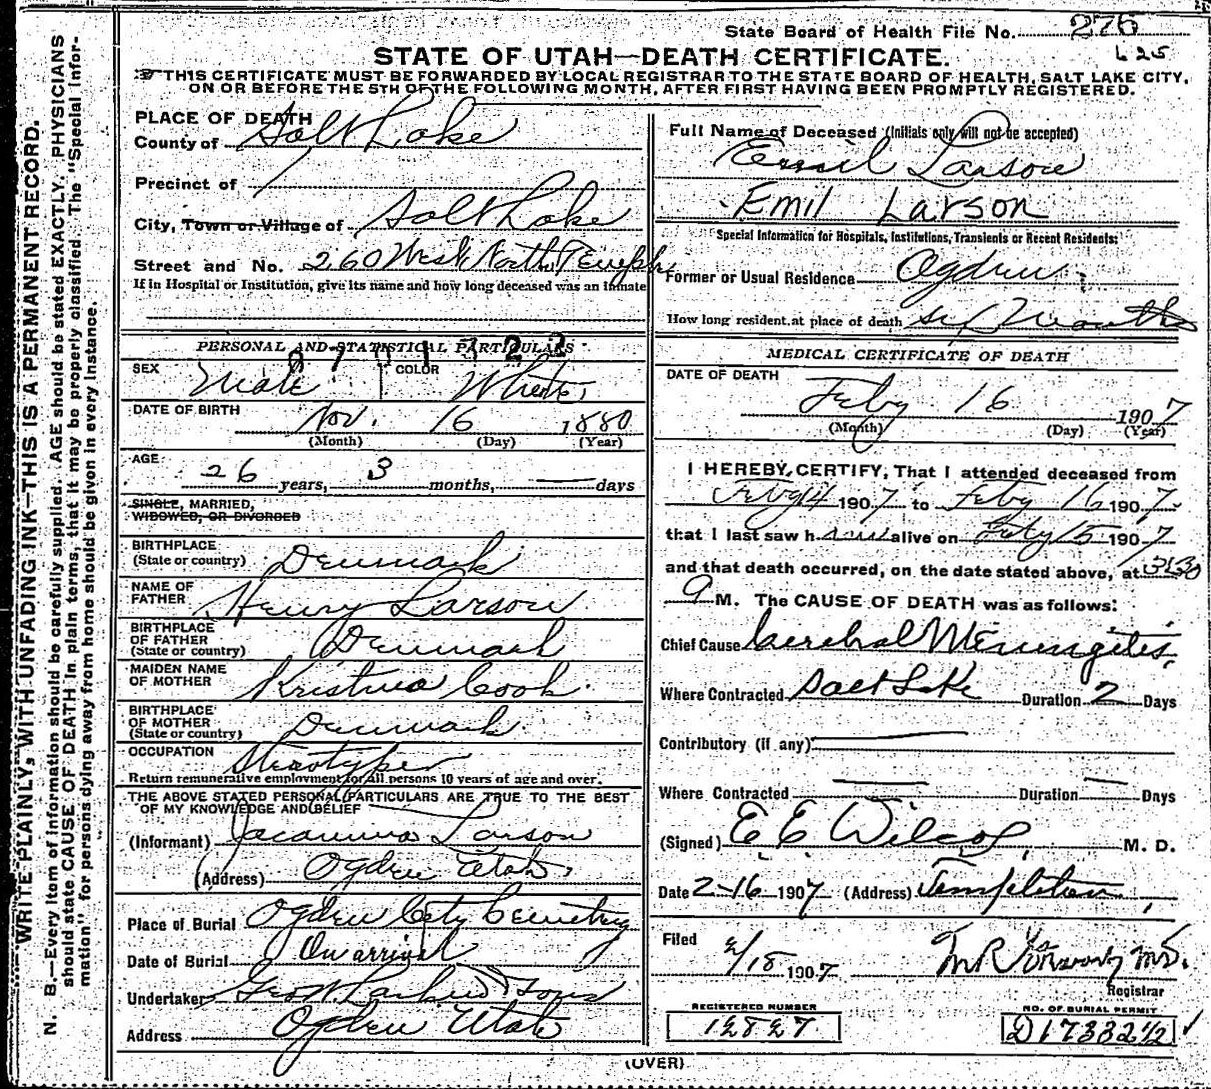 State Board of Health File No. 276
625
STATE OF UTAH—DEATH CERTIFICATE.
THIS CERTIFICATE MUST BE FORWARDED BY LOCAL REGISTRAR TO THE STATE BOARD OF HEALTH, SALT LAKE CITY,
ON OR BEFORE THE 5TH OF THE FOLLOWING MONTH, AFTER FIRST HAVING BEEN PROMPTLY REGISTERED.
WRITE PLAINLY, WITH UNFADING INK—THIS IS A PERMANENT RECORD.
N. B.—Every item of information should be carefully supplied. AGE should be stated EXACTLY. PHYSICIANS
should state CAUSE OF DEATH in plain terms, that it may be properly classified. The "Special Infor-
mation" for persons dying away from home should be given in every instance.
PLACE OF DEATH
County of Salt Lake
Precinct of
City, Town or Village of Salt Lake
Street and No. 260 West North Temple
If in Hospital or Institution, give its name and how long deceased was an inmate
PERSONAL AND STATISTICAL PARTICULARS
SEX Male COLOR White
DATE OF BIRTH Nov. 16 1880
(Month) (Day) (Year)
AGE 26 years, 3 months, — days
SINGLE, MARRIED,
WIDOWED, OR DIVORCED
BIRTHPLACE
(State or country) Denmark
NAME OF
FATHER Henry Larson
BIRTHPLACE
OF FATHER
(State or country) Denmark
MAIDEN NAME
OF MOTHER Kristina Cook
BIRTHPLACE
OF MOTHER
(State or country) Denmark
OCCUPATION Streotyper
Return remunerative employment for all persons 10 years of age and over.
THE ABOVE STATED PERSONAL PARTICULARS ARE TRUE TO THE BEST
OF MY KNOWLEDGE AND BELIEF
(Informant) Larson
(Address) Ogden Utah
Place of Burial Ogden City Cemetery
Date of Burial On arrival
Undertaker Geo W. Larkin & Sons
Address Ogden Utah
Full Name of Deceased (Initials only will not be accepted)
Emil Larson
Emil Larson
Special Information for Hospitals, Institutions, Transients or Recent Residents:
Former or Usual Residence Ogden
How long resident at place of death six Months
MEDICAL CERTIFICATE OF DEATH
DATE OF DEATH
Feby 16 1907
(Month) (Day) (Year)
I HEREBY CERTIFY, That I attended deceased from
Feby 14 1907 to Feby 16 1907
that I last saw him alive on Feby 15 1907
and that death occurred, on the date stated above, at 3:30
a M. The CAUSE OF DEATH was as follows:
Chief Cause Cerebral Meningitis
Where Contracted Salt Lake Duration 2 Days
Contributory (if any): —
Where Contracted — Duration — Days
(Signed) E E Wilcox M. D.
Date 2-16 1907 (Address) Templeton
Filed 2/18 1907
Registrar
REGISTERED NUMBER
NO. OF BURIAL PERMIT
(OVER)